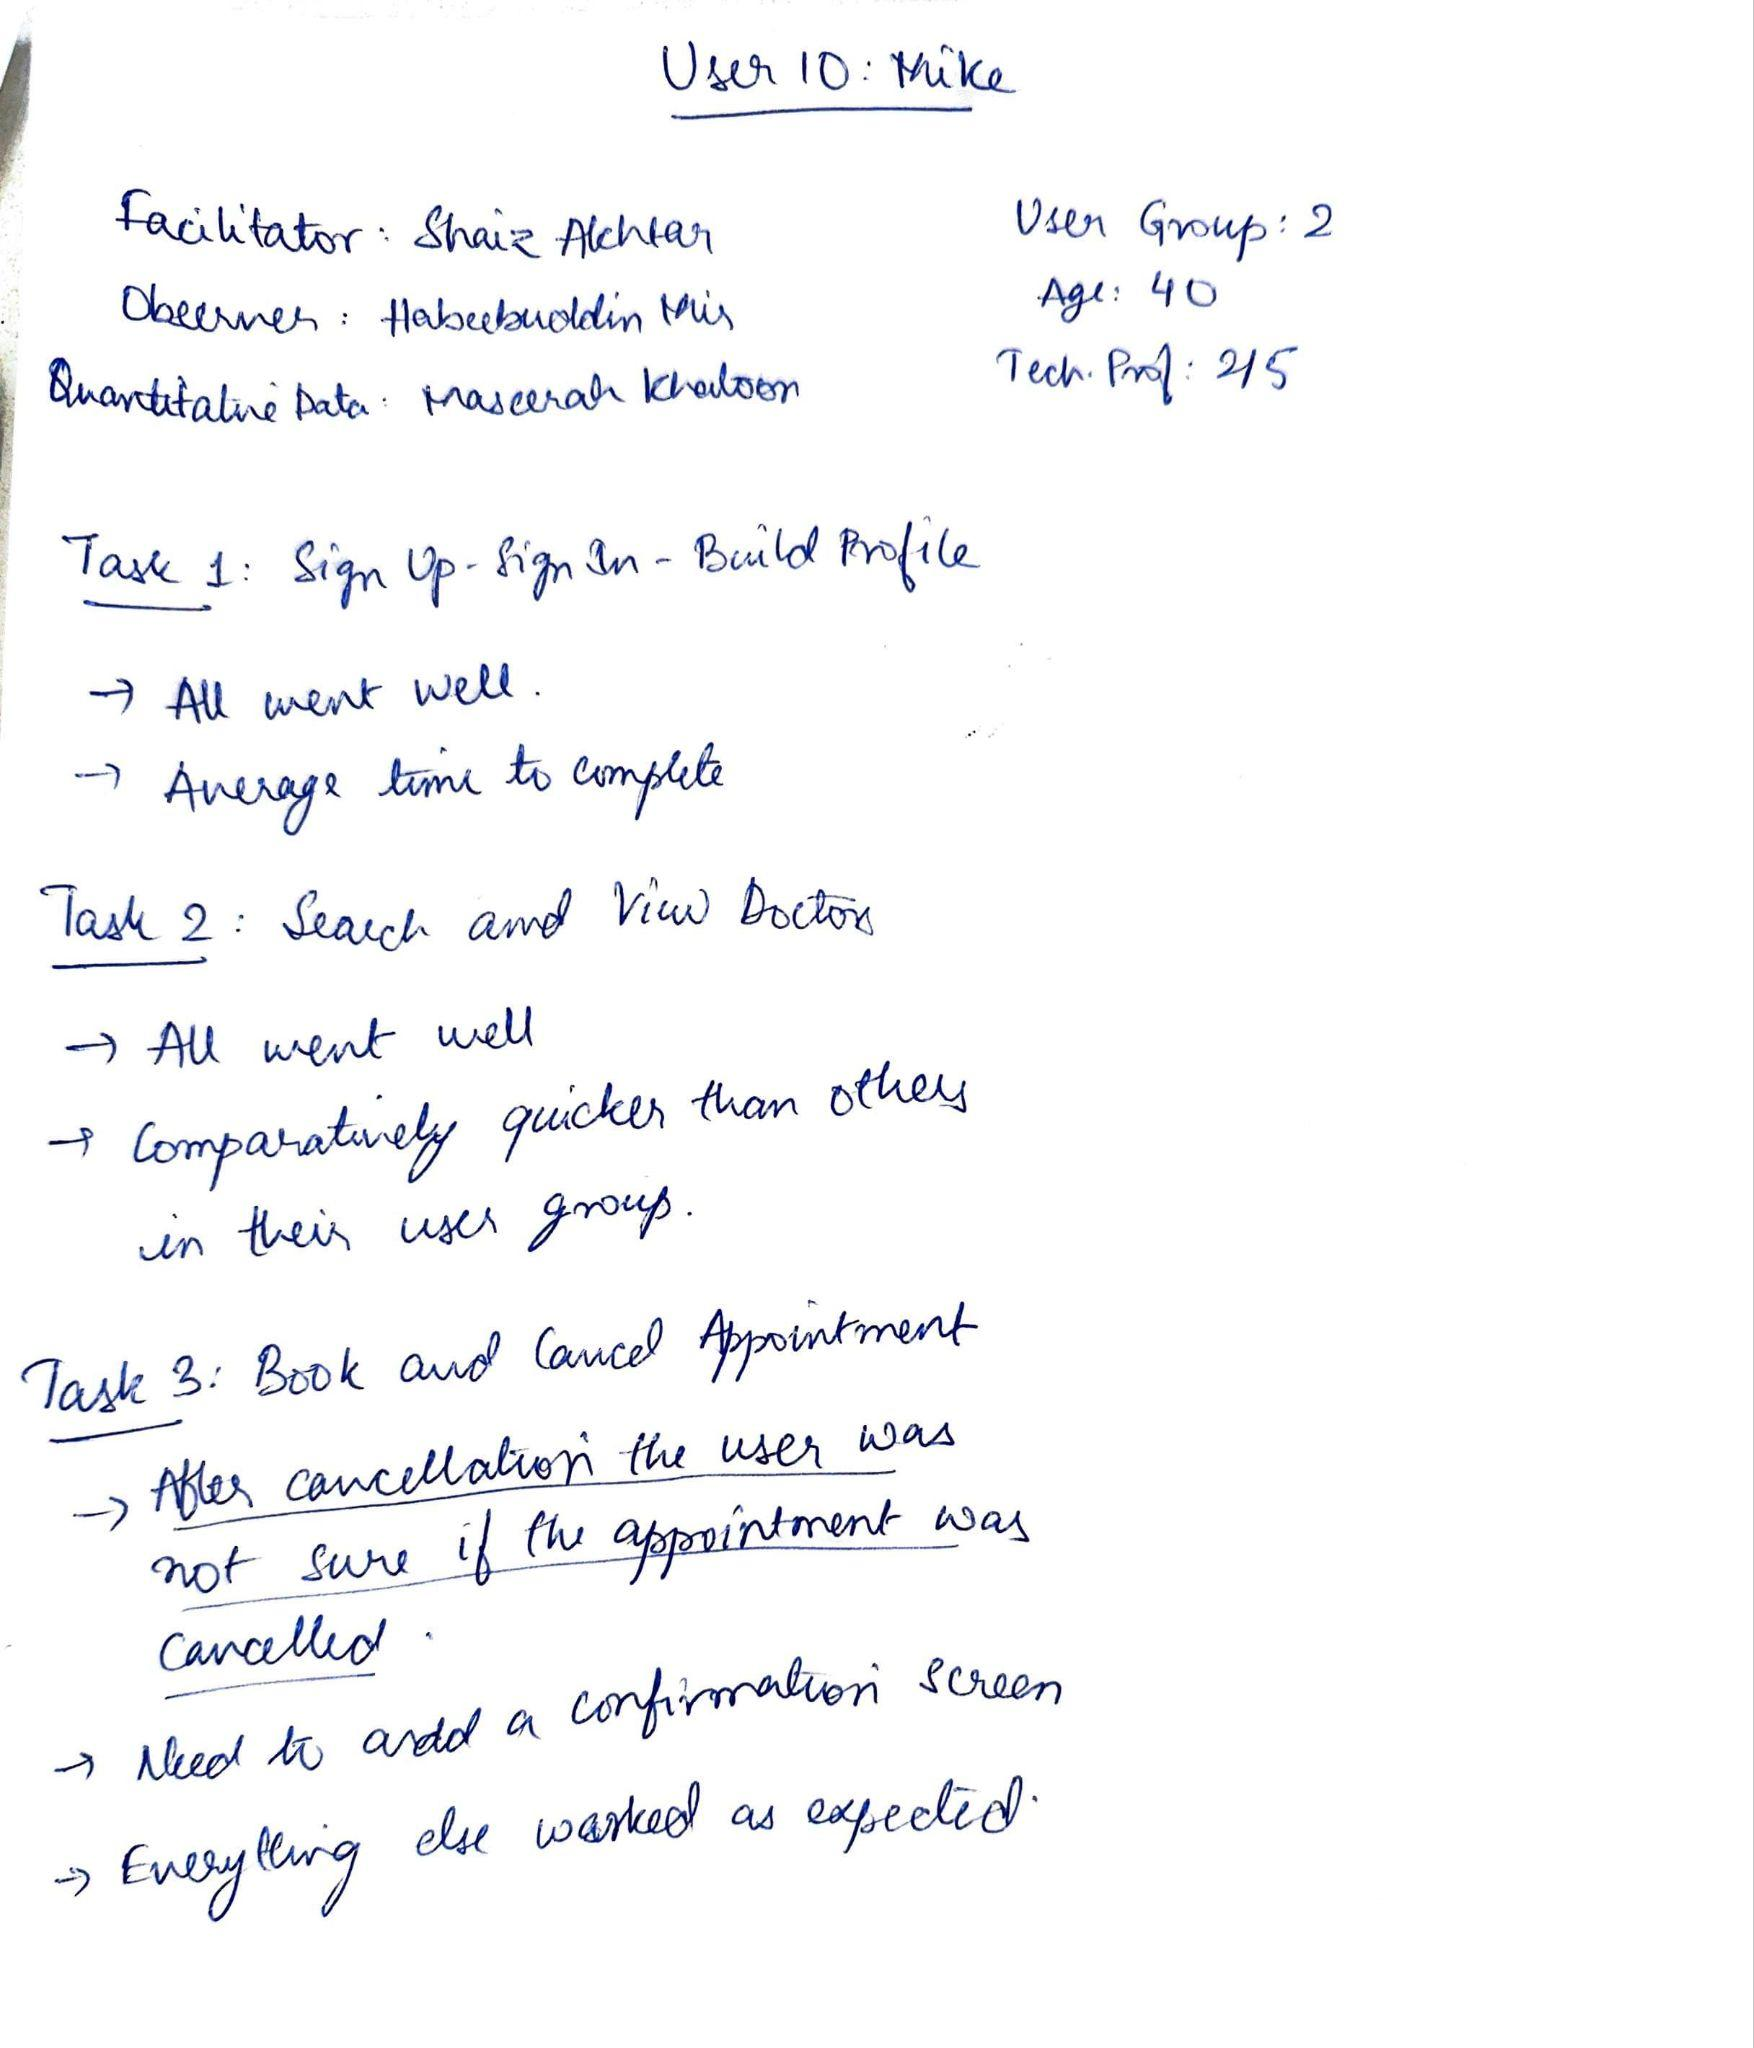 User 10: Mike
Facilitator: Shaiz Akhtar
User Group: 2
Observer: Habeebuddin Mir
Age: 40
Quantitative Data: Maseerah Khatoon
Tech. Prof: 2/5
Task 1: Sign Up - Sign In - Build Profile
→ All went well.
→ Average time to complete
Task 2: Search and View Doctors
→ All went well
→ Comparatively quicker than others
in their user group.
Task 3: Book and Cancel Appointment
→ After cancellation the user was
not sure if the appointment was
cancelled.
→ Need to add a confirmation screen
→ Everything else worked as expected.